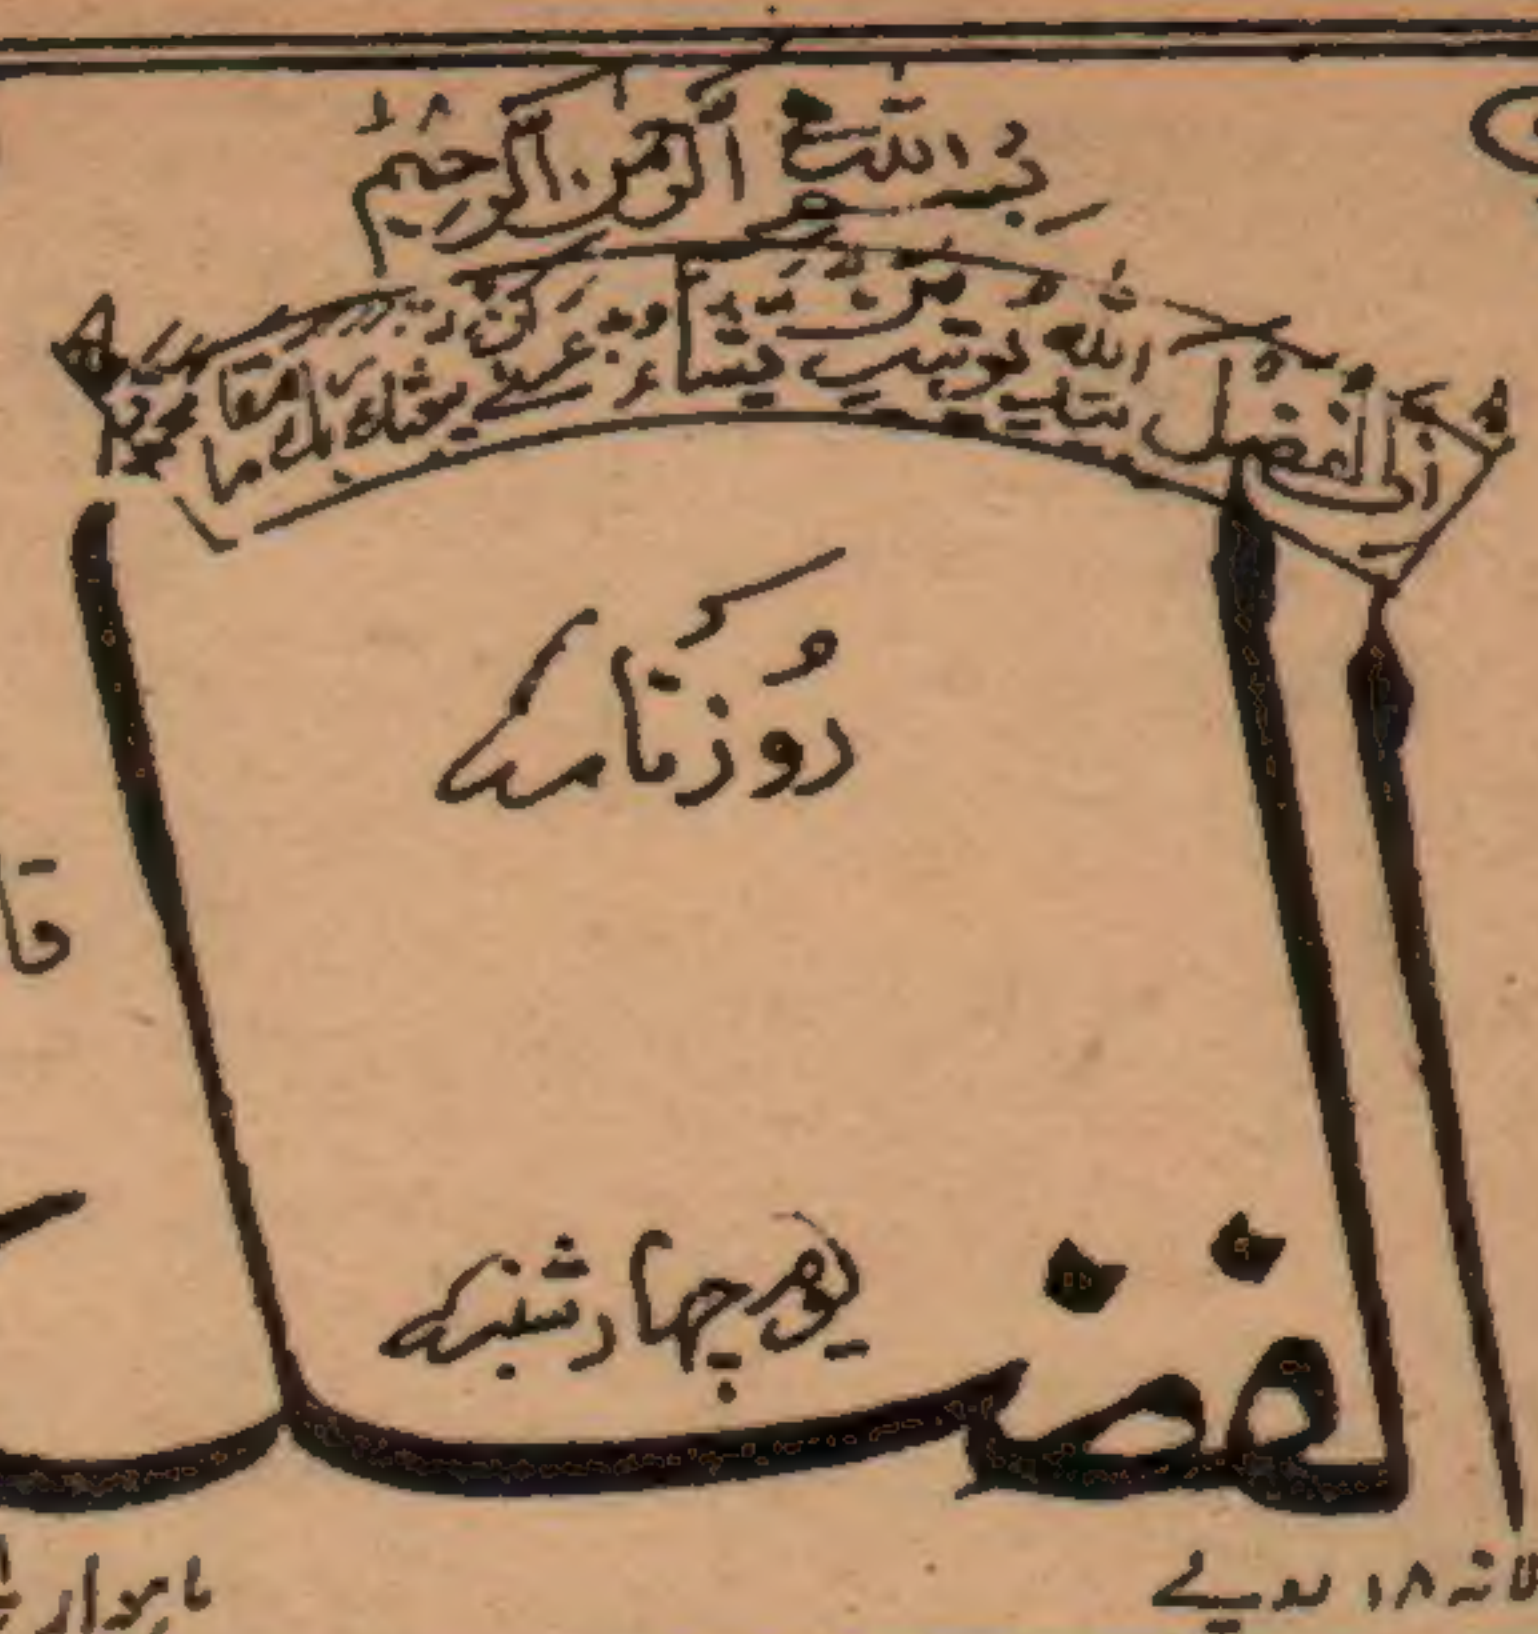 بسم اللہ الرحمن الرحیم
ان الفضل بید اللہ یوتیہ من یشاء عسی ان یبعثک ربک مقاما محمودا
روزنامہ
قا
الفضل
یوم چہار شنبہ
۱۸ روپے
ماہوار